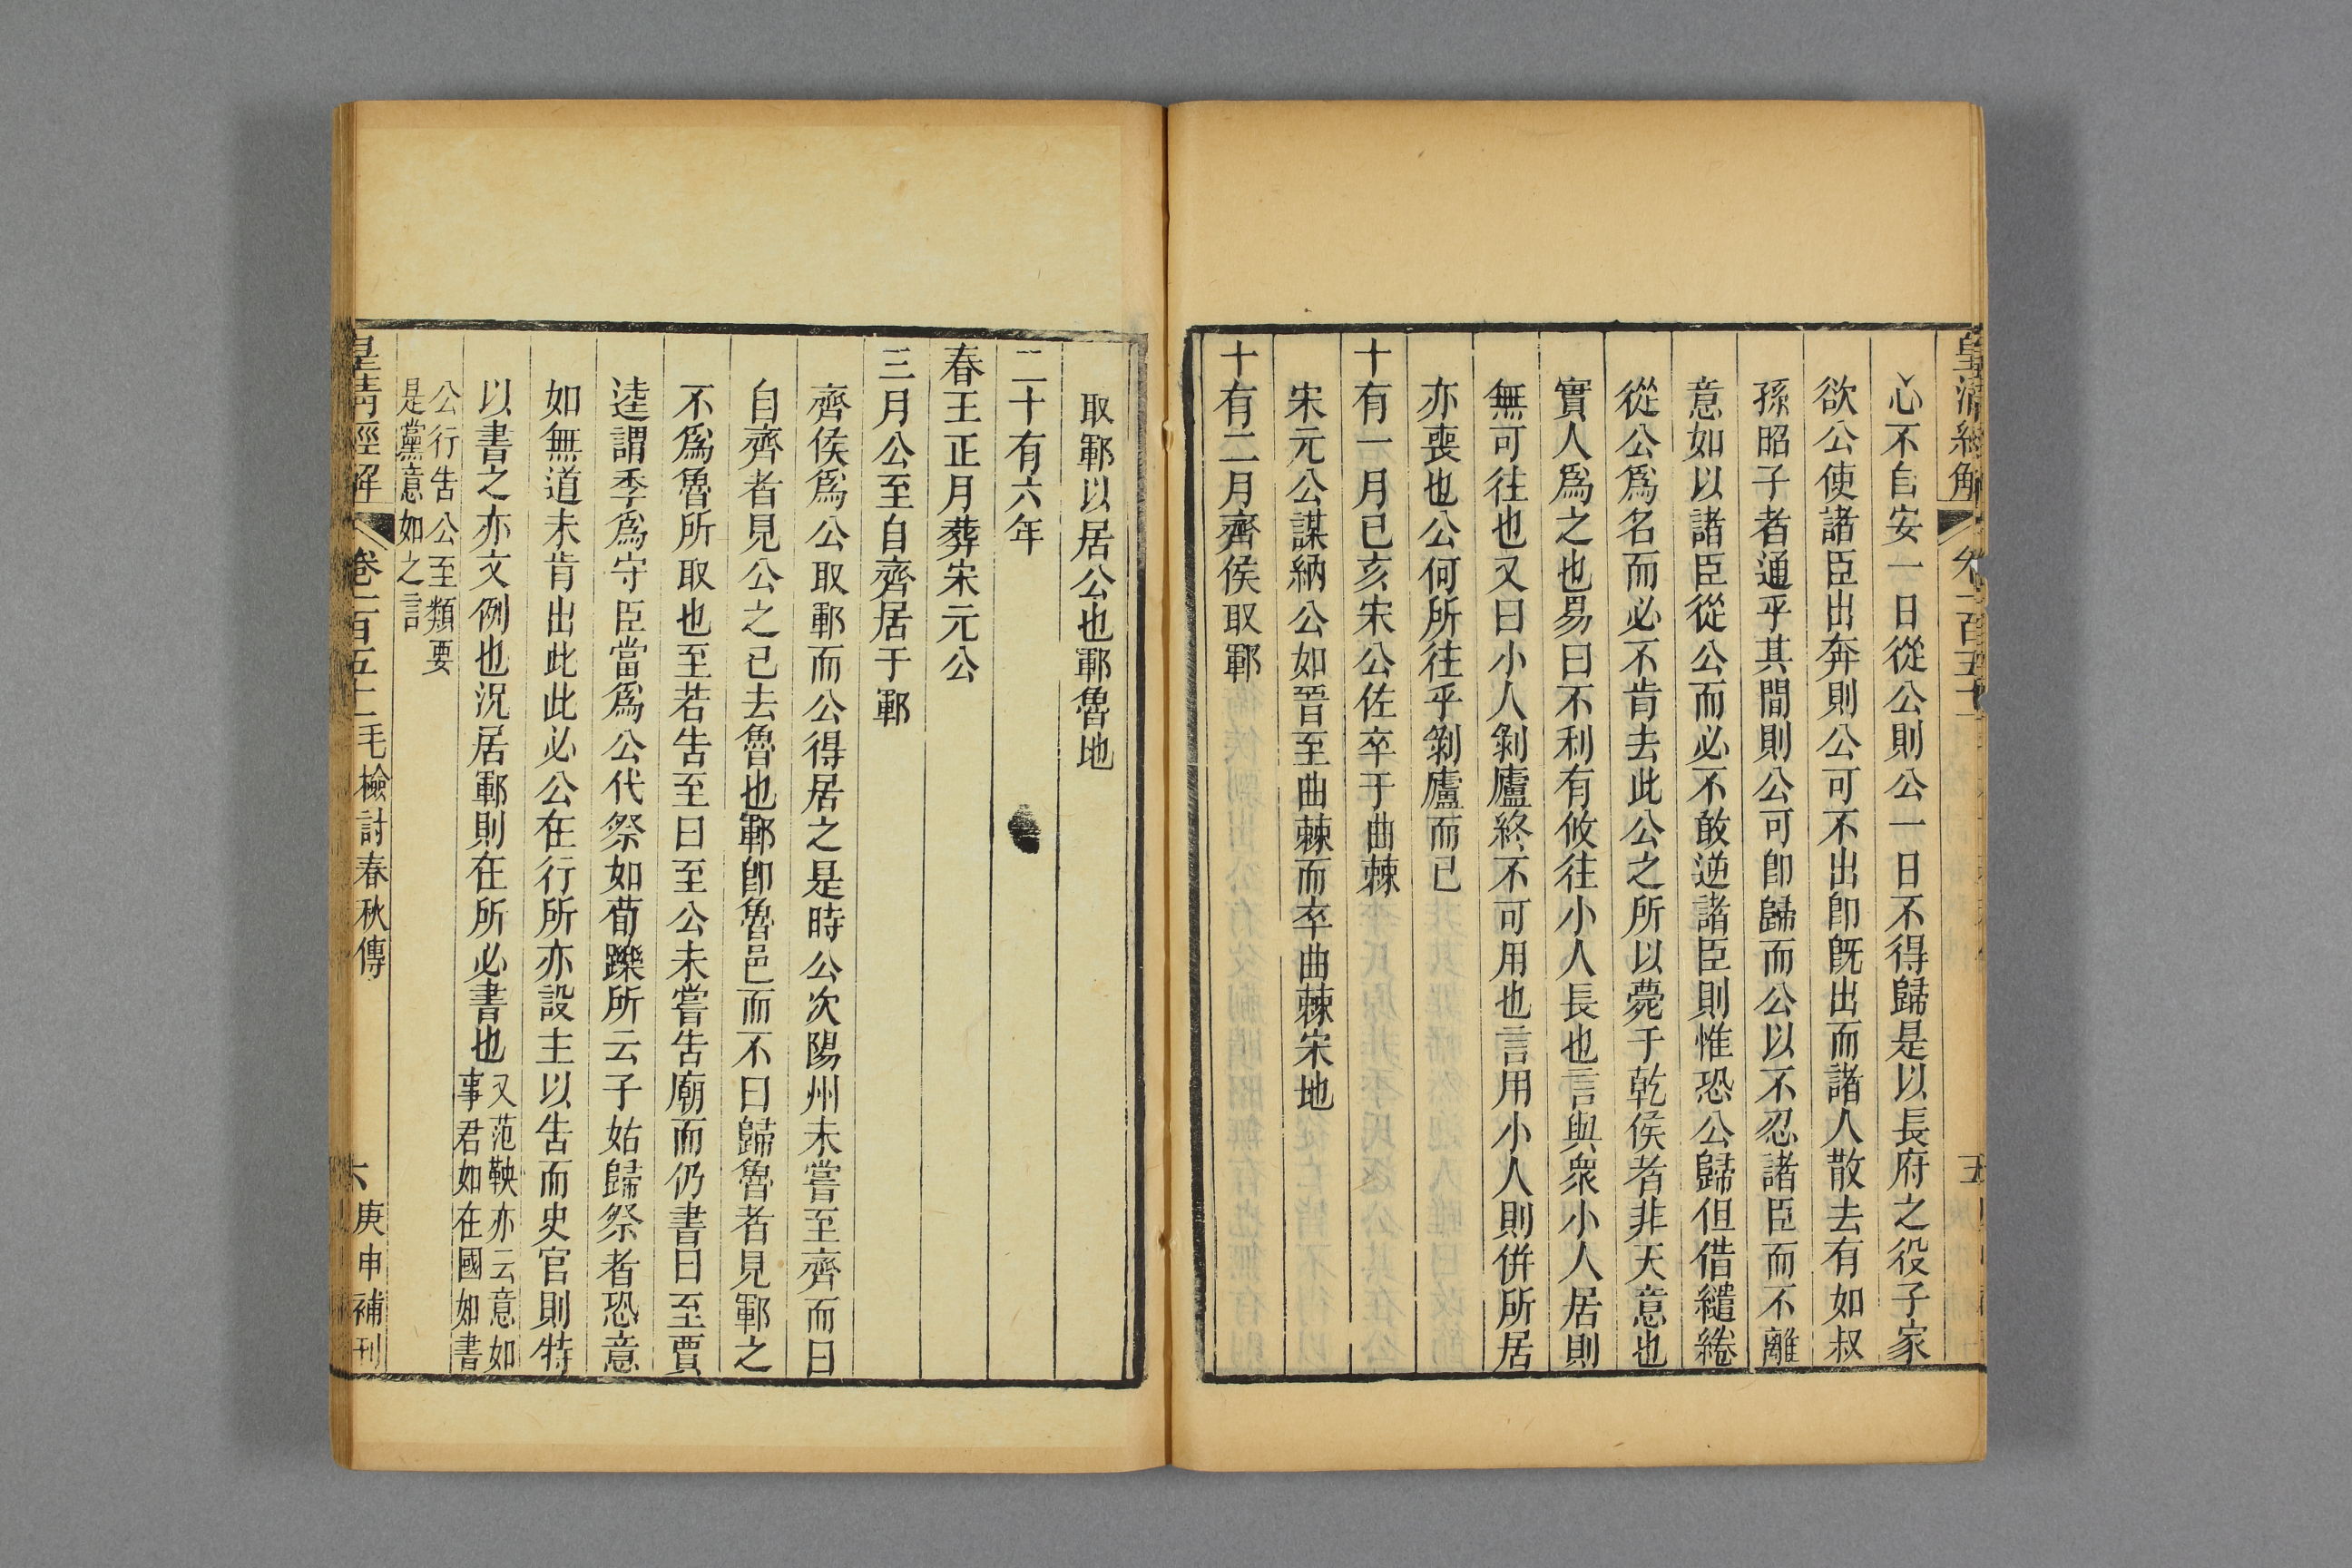 皇清經解 卷一百五十一 五
心不自安一日從公則公一日不得歸是以長府之役子家
欲公使諸臣出奔則公可不出卽旣出而諸人散去有如叔
孫昭子者通乎其間則公可卽歸而公以不忍諸臣而不離
意如以諸臣從公而必不敢逆諸臣則惟恐公歸但借繾綣
從公爲名而必不肯去此公之所以薨于乾侯者非天意也
實人爲之也易曰不利有攸往小人長也言與衆小人居則
無可往也又曰小人剝廬終不可用也言用小人則併所居
亦喪也公何所往乎剝廬而已
十有一月己亥宋公佐卒于曲棘
宋元公謀納公如晉至曲棘而卒曲棘宋地
十有二月齊侯取鄆
取鄆以居公也鄆魯地
二十有六年
春王正月葬宋元公
三月公至自齊居于鄆
齊侯爲公取鄆而公得居之是時公次陽州未嘗至齊而曰
自齊者見公之已去魯也鄆卽魯邑而不曰歸魯者見鄆之
不爲魯所取也至若告至曰至公未嘗告廟而仍書曰至賈
逵謂季爲守臣當爲公代祭如荀躒所云子姑歸祭者恐意
如無道未肯出此此必公在行所亦設主以告而史官則特
以書之亦文例也況居鄆則在所必書也又范鞅亦云意如
事君如在國如書
公行告公至類要
是黨意如之言
皇清經解 卷一百五十一 毛檢討春秋傳 六 庚申補刊